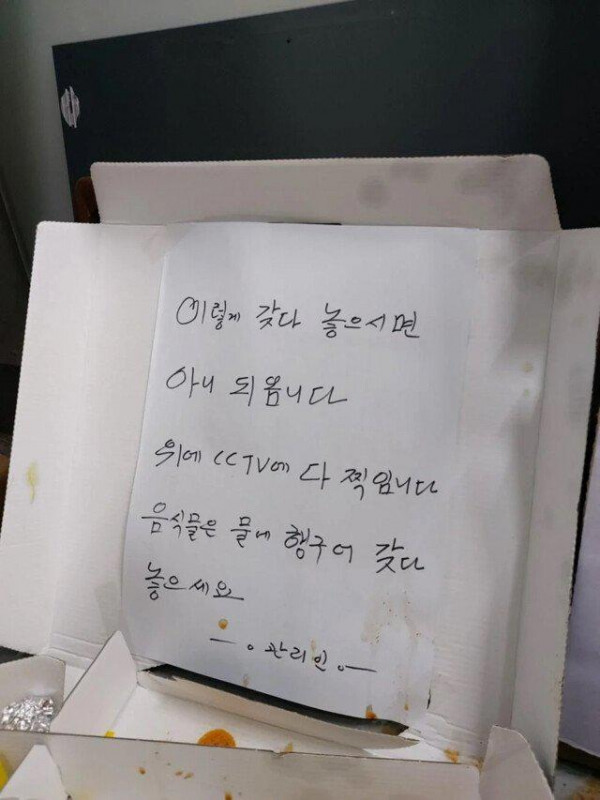 이렇게 갖다 놓으시면
아니 되옵니다
위에 CCTV에 다 찍입니다
음식물은 물에 행구어 갖다
놓으세요
관리인